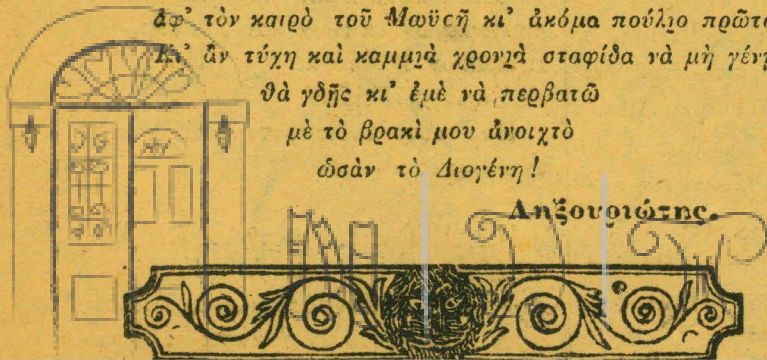 ἀφ' τὸν καιρὸ τοῦ Μωϋσῆ κι' ἀκόμα πούλιο πρῶτα
Κι' ἂν τύχη καὶ καμμιὰ χρονιὰ σταφίδα νὰ μὴ γένῃ
θὰ γδῇς κι' ἐμὲ νὰ περβατῶ
μὲ τὸ βρακί μου ἀνοιχτὸ
ὡσὰν τὸ Διογένη!
Ληξουριώτης.